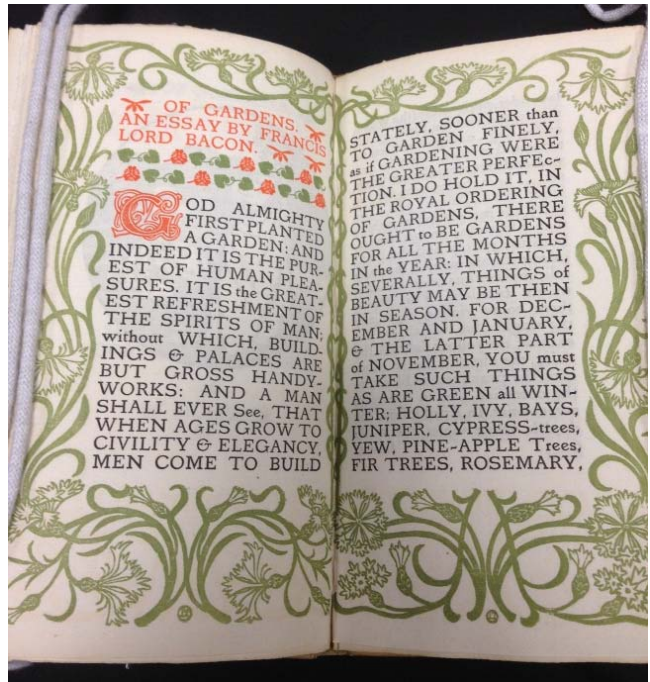 OF GARDENS.
AN ESSAY BY FRANCIS
LORD BACON.
GOD ALMIGHTY
FIRST PLANTED
A GARDEN: AND
INDEED IT IS THE PUR-
EST OF HUMAN PLEA-
SURES. IT IS the GREAT-
EST REFRESHMENT OF
THE SPIRITS OF MAN;
without WHICH, BUILD-
INGS & PALACES ARE
BUT GROSS HANDY-
WORKS: AND A MAN
SHALL EVER See, THAT
WHEN AGES GROW TO
CIVILITY & ELEGANCY,
MEN COME TO BUILD
STATELY, SOONER than
TO GARDEN FINELY,
as if GARDENING WERE
THE GREATER PERFEC-
TION. I DO HOLD IT, IN
THE ROYAL ORDERING
OF GARDENS, THERE
OUGHT to BE GARDENS
FOR ALL THE MONTHS
IN the YEAR: IN WHICH,
SEVERALLY, THINGS of
BEAUTY MAY BE THEN
IN SEASON. FOR DEC-
EMBER AND JANUARY,
& THE LATTER PART
of NOVEMBER, YOU must
TAKE SUCH THINGS
AS ARE GREEN all WIN-
TER: HOLLY, IVY, BAYS,
JUNIPER, CYPRESS-trees,
YEW, PINE-APPLE Trees,
FIR TREES, ROSEMARY,